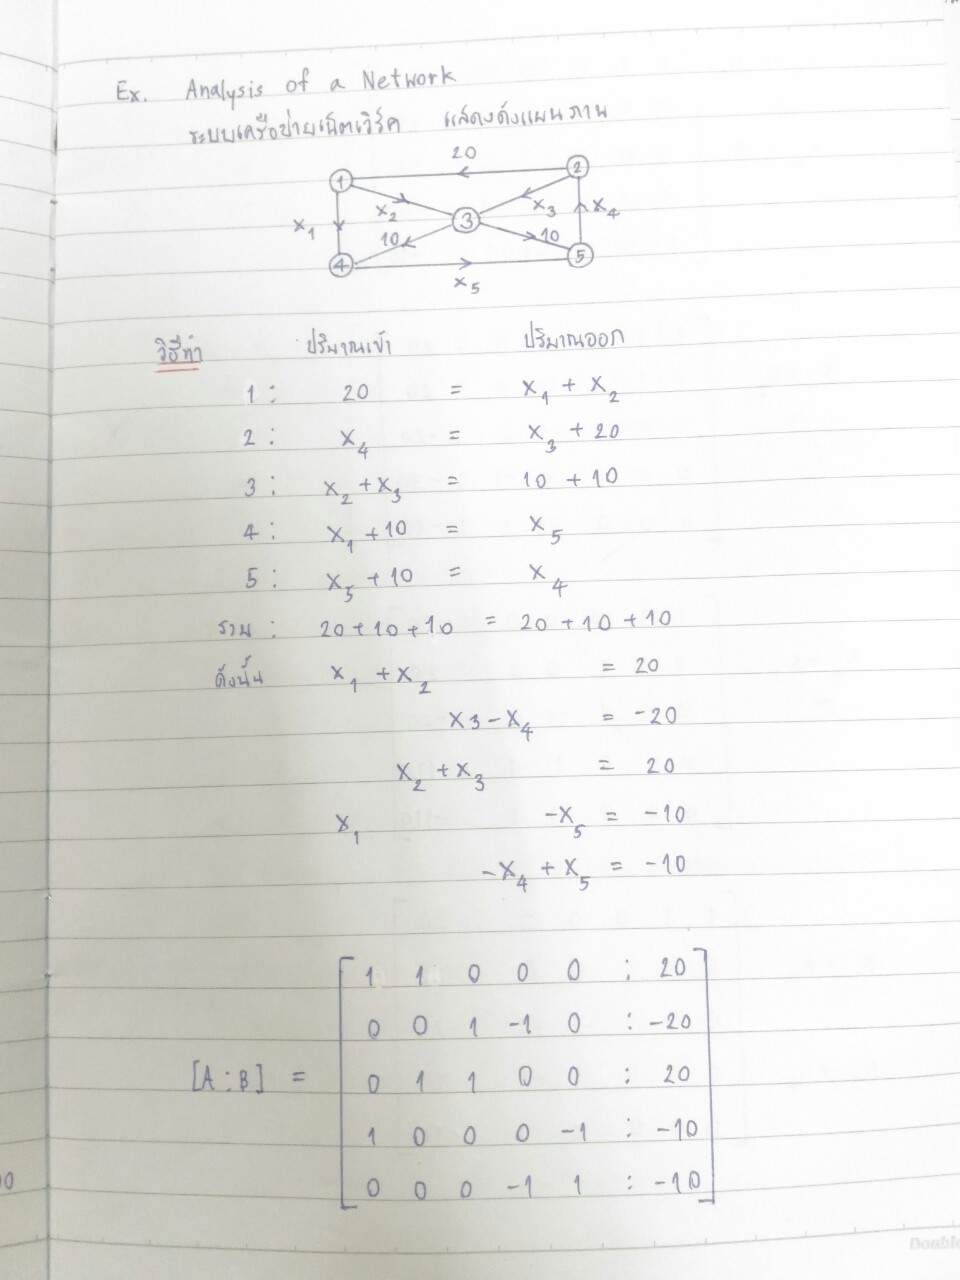 Ex. Analysis of a Network
ระบบเครือข่ายเน็ตเวิร์ค แสดงดังแผนภาพ
20
1 2
x₁ x₂ 3 x₃ x₄
10 10
4 5
x₅
วิธีทำ ปริมาณเข้า ปริมาณออก
1 : 20 = x₁ + x₂
2 : x₄ = x₃ + 20
3 : x₂ + x₃ = 10 + 10
4 : x₁ + 10 = x₅
5 : x₅ + 10 = x₄
รวม : 20 + 10 + 10 = 20 + 10 + 10
ดังนั้น x₁ + x₂ = 20
x3 - x₄ = -20
x₂ + x₃ = 20
x₁ -x₅ = -10
-x₄ + x₅ = -10
1 1 0 0 0 : 20
0 0 1 -1 0 : -20
[A : B] = 0 1 1 0 0 : 20
1 0 0 0 -1 : -10
0 0 0 -1 1 : -10
Double